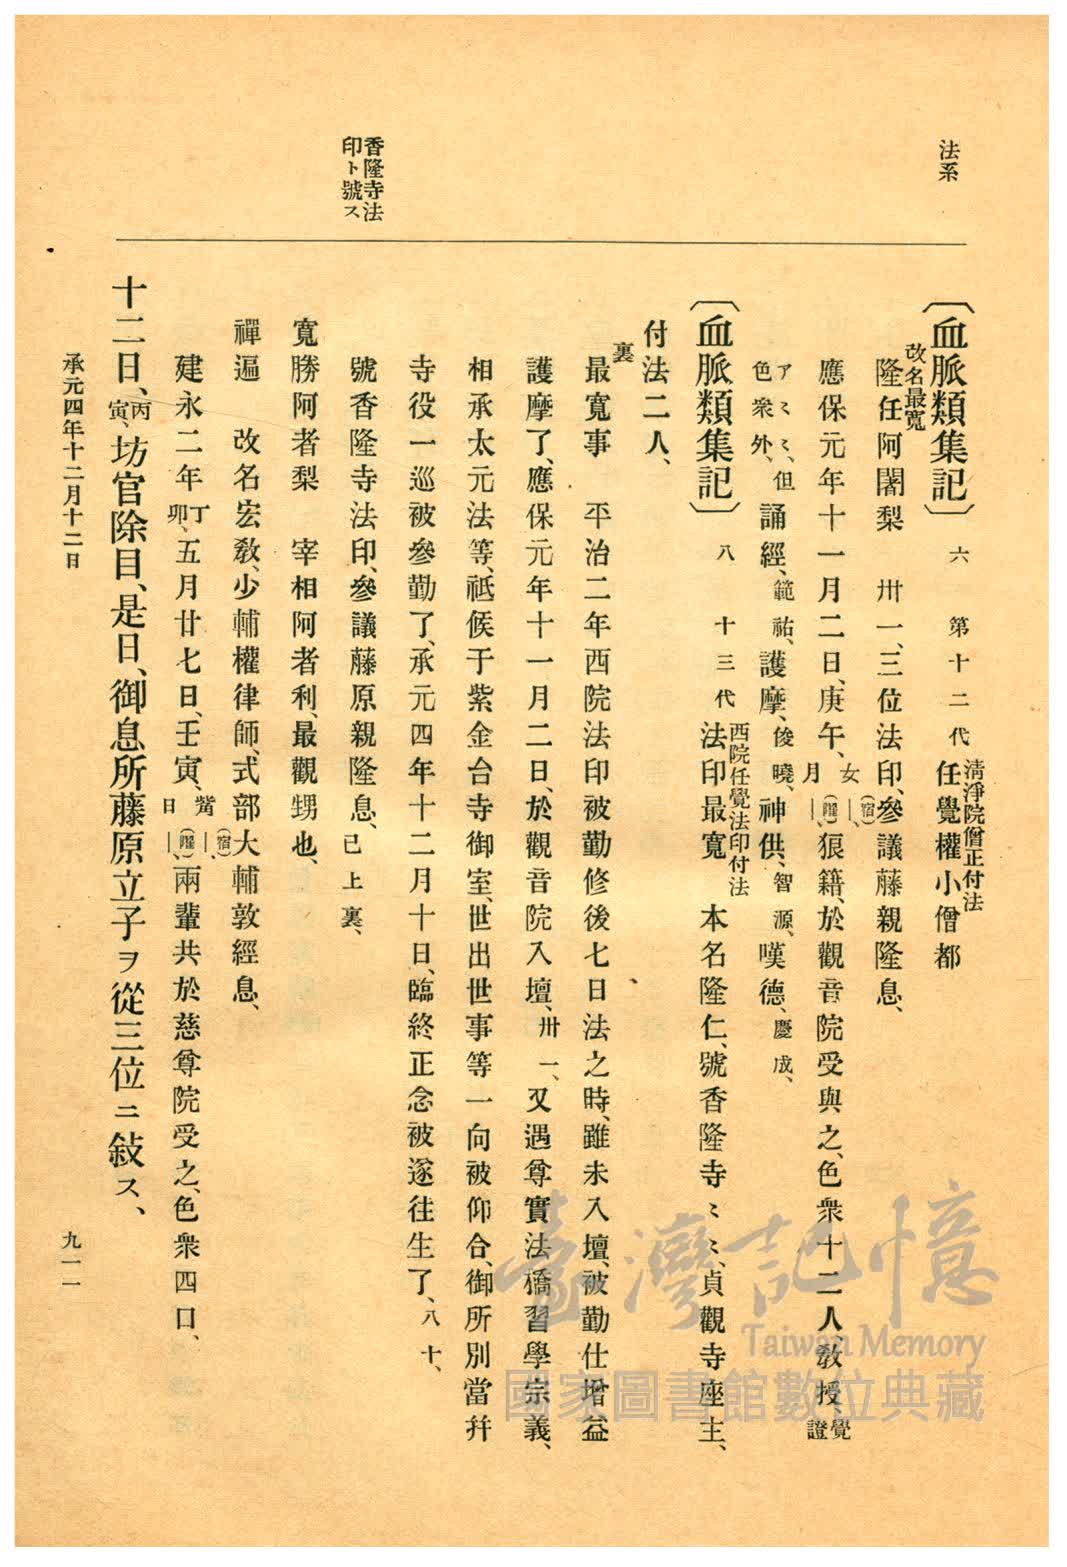 法系
香隆寺法
印ト號ス
〔血脈類集記〕 六 第十二代 任覺權小僧都
清淨院僧正付法
改名最寬
隆任阿闍梨 卅一、三位法印、參議藤親隆息、
應保元年十一月二日、庚午、女(宿)月(曜)、狼籍、於觀音院受與之、色衆十二人、敎授、覺證
アミヽ、但色衆外、誦經、範祐、護摩、俊曉、神供、智源、嘆德、慶成、
〔血脈類集記〕 八 十三代 法印最寬 本名隆仁、號香隆寺〻〻、貞觀寺座主、
西院任覺法印付法
付法二人、
裏
最寬事 平治二年西院法印被勤修後七日法之時、雖未入壇、被勤仕增益
護摩了、應保元年十一月二日、於觀音院入壇、卅一、又遇尊實法橋習學宗義、
相承太元法等、祗候于紫金台寺御室、世出世事等一向被仰合、御所別當幷
寺役一巡被參勤了、承元四年十二月十日、臨終正念被遂往生了、八十、
號香隆寺法印、參議藤原親隆息、已上裏、
寬勝阿者梨 宰相阿者利、最觀甥也、
禪遍 改名宏敎、少輔權律師、式部大輔敦經息、
建永二年丁卯、五月廿七日、壬寅、觜(宿)日(曜)、兩輩共於慈尊院受之、色衆四口、
十二日、丙寅、坊官除目、是日、御息所藤原立子ヲ從三位ニ敍ス、
承元四年十二月十二日
九一一
臺灣記憶
Taiwan Memory
國家圖書館數位典藏